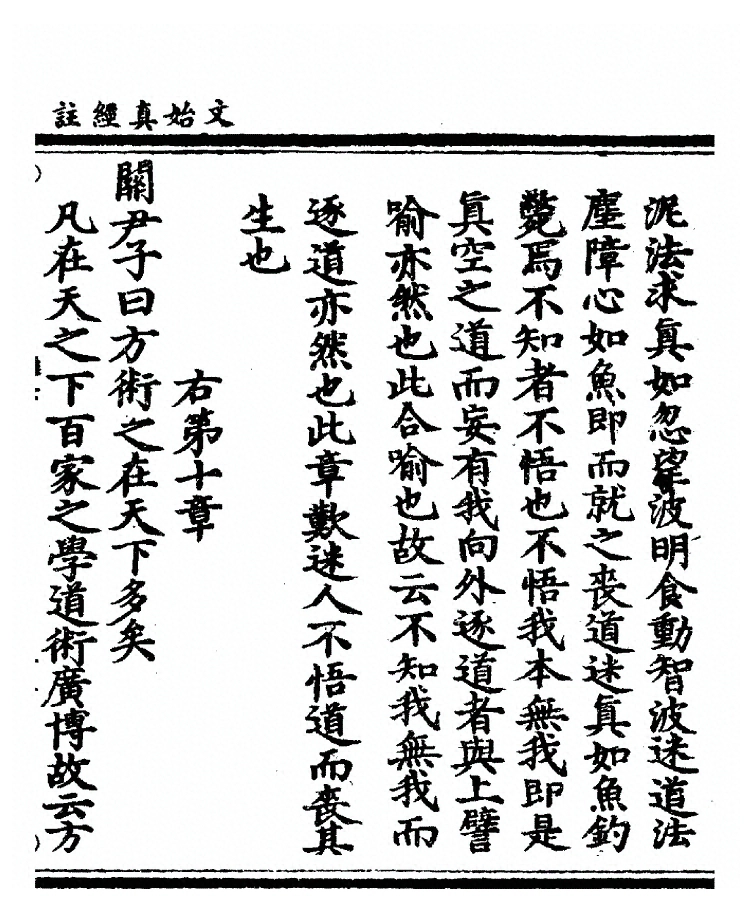 文始真經註
泥法求眞如忽望波明食動智波迷道法
塵障心如魚即而就之喪道迷眞如魚釣
斃焉不知者不悟也不悟我本無我即是
眞空之道而妄有我向外逐道者與上譬
喻亦然也此合喻也故云不知我無我而
逐道亦然也此章歎迷人不悟道而喪其
生也
右第十章
關尹子曰方術之在天下多矣
凡在天之下百家之學道術廣博故云方